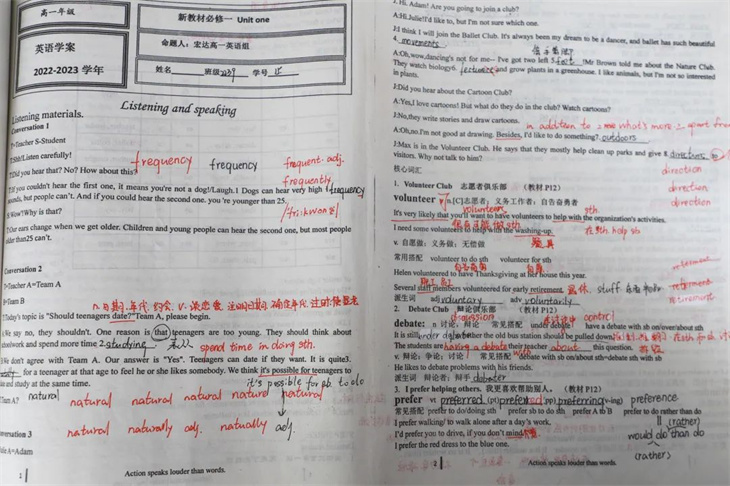 高一年级
英语学案
2022-2023 学年
新教材必修一 Unit one
命题人：宏达高一英语组
姓名 班级 2239 学号 15
Listening and speaking
Listening materials.
Conversation 1
=Teacher S-Student
Listen carefully!
frequency frequency frequent. adj.
Did you hear that? No? How about this?
frequently
If you couldn't hear the first one, it means you're not a dog!/Laugh.1 Dogs can hear very high 1 frequency
sounds, but people can't. And if you could hear the second one. you 're younger than 25.
Wow! Why is that?
Our ears change when we get older. Children and young people can hear the second one, but most people
older than25 can't.
Conversation 2
=Teacher A=Team A
B=Team B
Today's topic is "Should teenagers date?"Team A, please begin.
We say no, they shouldn't. One reason is that teenagers are too young. They should think about
schoolwork and spend more time 2. studying
spend time in doing sth.
We don't agree with Team A. Our answer is "Yes". Teenagers can date if they want. It is quite3.
for a teenager at that age to feel he or she likes somebody. We think it's possible for teenagers to
and study at the same time.
it's possible for sb. to do
Team A?
natural natural natural natural nature natural
natural naturally adj. natually adj.
Conversation 3
=Adam
1
Action speaks louder than words.
J:Hi. Adam! Are you going to join a club?
A:Hi,Julie!I'd like to, but I'm not sure which one.
J:I think I will join the Ballet Club. It's always been my dream to be a dancer, and ballet has such beautiful
4. movements
A:Oh,wow,dancing's not for me~ I've got two left 5. feet !Mr Brown told me about the Nature Club.
They watch biology6. lectures and grow plants in a greenhouse. I like animals, but I'm not so interested
in plants.
J:Did you hear about the Cartoon Club?
A:Yes,I love cartoons! But what do they do in the club? Watch cartoons?
J:No,they write stories and draw cartoons.
in addition to = what's more = apart from
A:Oh,no.I'm not good at drawing. Besides, I'd like to do something7. outdoors
J:Max is in the Volunteer Club. He says that they mostly help clean up parks and give 8. directions to
visitors. Why not talk to him?
direction
核心词汇
direction
1. Volunteer Club 志愿者俱乐部 （教材 P12）
direction
volunteer n.[C]志愿者；义务工作者；自告奋勇者
volunteer
It's very likely that you'll want to have volunteers to help with the organization's activities.
I need some volunteers to help with the washing-up.
在sth. help sb
v. 自愿做；义务做；无偿做
常用搭配 volunteer to do sth volunteer for sth
自告奋勇
Helen volunteered to have Thanksgiving at her house this year.
retirement
Several staff members volunteered for early retirement.
retirement
派生词 adj voluntary adv voluntarily
retirement
2. Debate Club 辩论俱乐部 （教材 P12）
discussion control
debate: n 讨论；辩论 常见搭配 under debate have a debate with sb on/over/about sth
It is still under debate whether the old bus station should be pulled down.
The students are having a debate with their teacher about this question.
v. 辩论；争论；讨论 常见搭配 debate with sb on/about sth=debate sth with sb
He likes to debate problems with his friends.
派生词 辩论者；辩手 debater
3. I prefer helping others. 我更喜欢帮助别人。 （教材 P12）
prefer vt preferred (pt) preferred (pp) preferring (-ing) preference
常见搭配 prefer to do/doing sth prefer sb to do sth prefer A to B prefer to do rather than do
(rather)
I prefer walking/ to walk alone after a day's work.
I'd prefer you to drive, if you don't mind.
would do than do
I prefer the red dress to the blue one.
(rather)
2
Action speaks louder than words.